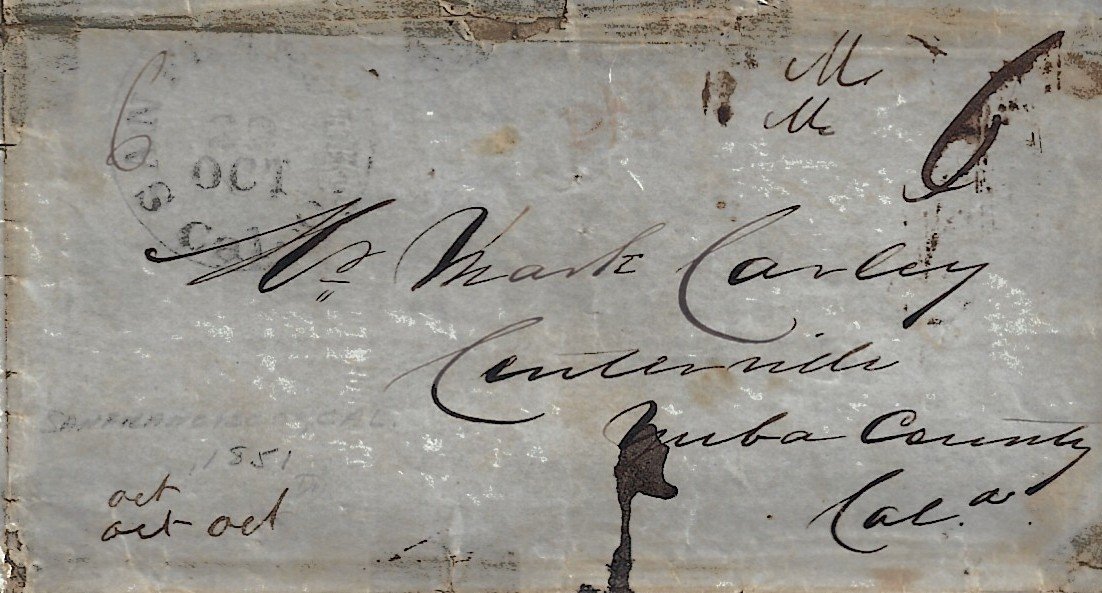 6
OCT
Cal.
M
Mc
6
Mr Mark Carley
Centerville
Yuba County
Cal.a
SAN FRANCISCO CAL.
1851
oct
oct oct